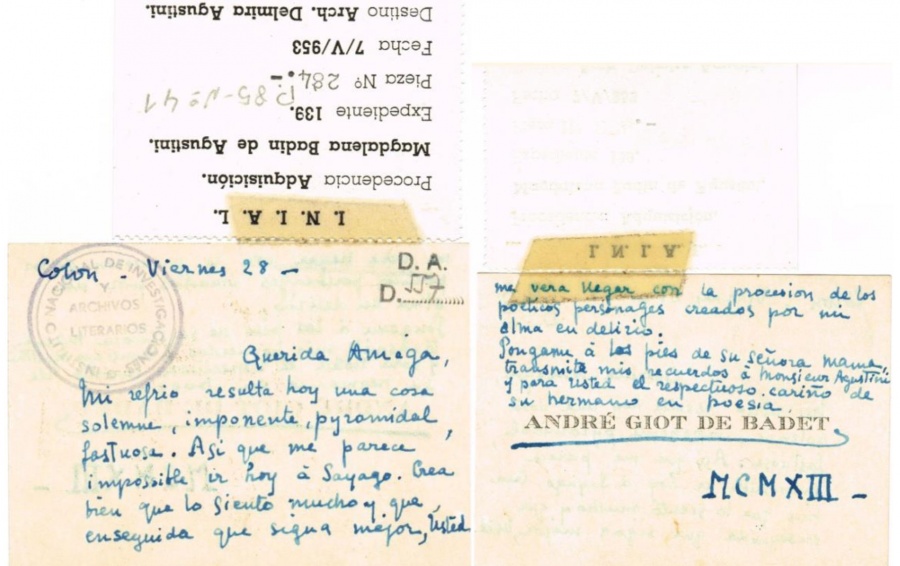 I. N. I. A. L.
Procedencia Adquisición.
Magdalena Badin de Agustini.
Expediente 139.
Pieza Nº 284.-
Fecha 7/V/953
Destino Arch. Delmira Agustini.
P.85-Nº 41
INSTITUTO NACIONAL DE INVESTIGACIONES
Y
ARCHIVOS
LITERARIOS
D. A.
D. 557
Colon - Viernes 28 -
Querida Amiga,
Mi refrio resulta hoy una cosa
solemne, imponente, pyramidal,
fastuosa. Asi que me parece
impossible ir hoy à Sayago. Crea
bien que lo siento mucho y que,
enseguida que segua mejor, Usted
I. N. I. A.
me vera llegar con la procesion de los
poeticos personages creados por mi
alma en delirio.
Pongame à los pies de su señora mama,
transmite mis recuerdos à Monsieur Agustini
y para Usted el respectuoso cariño de
su hermano en poesia
ANDRÉ GIOT DE BADET
MCMXIII -